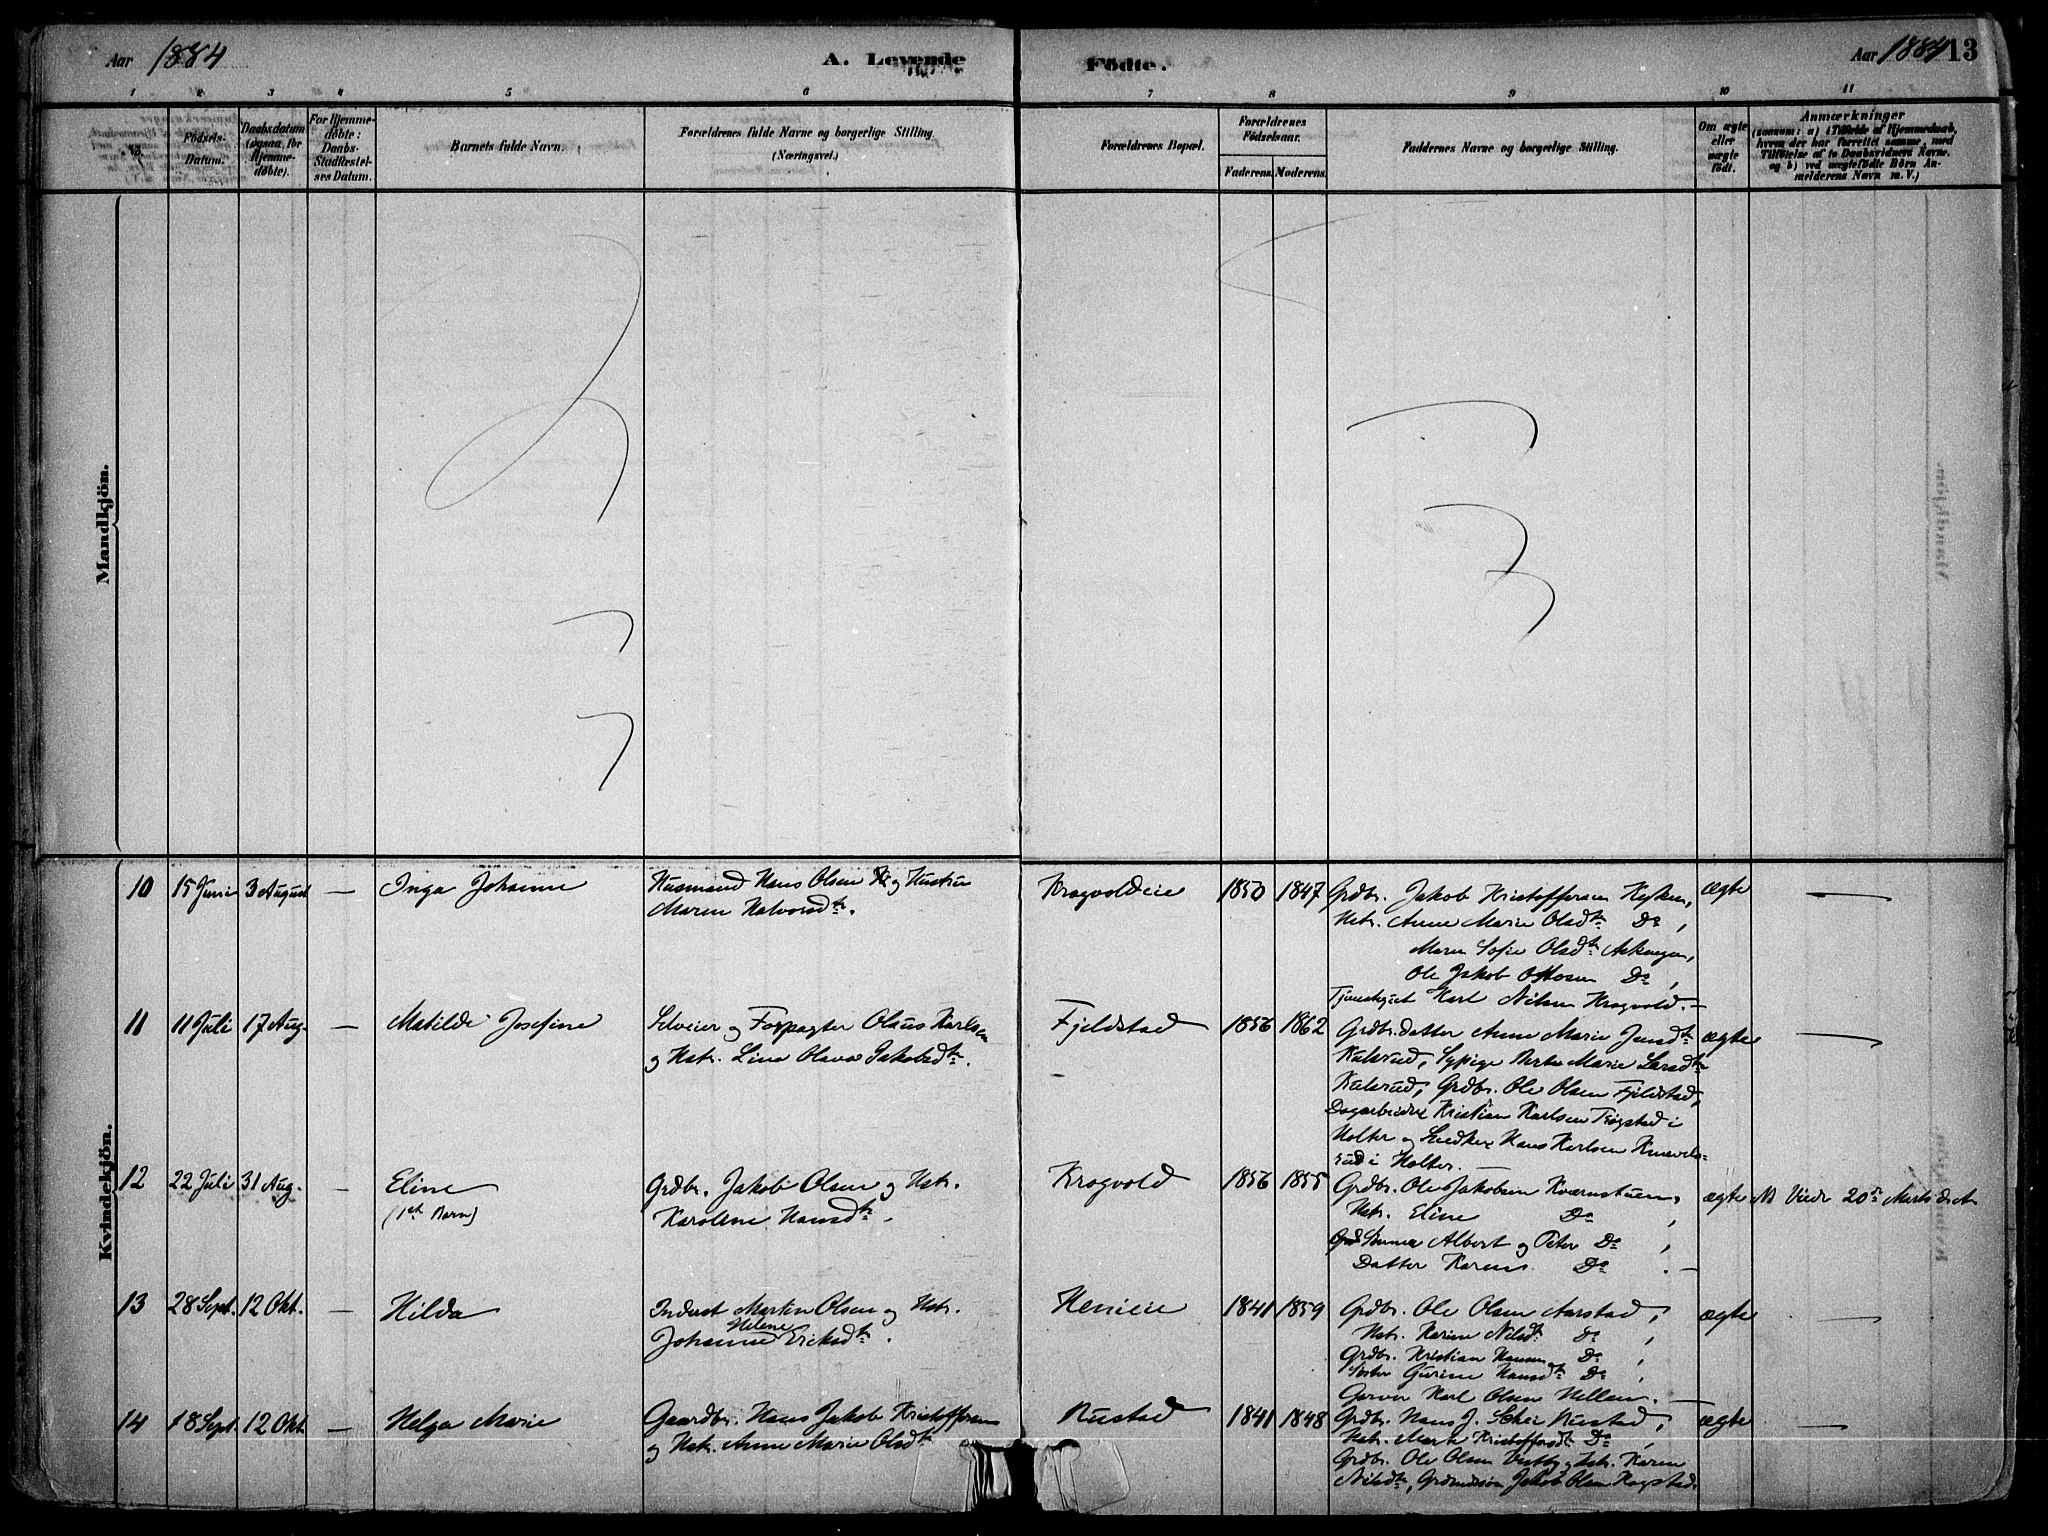 Aar 1884
A. Levende
Födte.
Aar 1884 13
1 2 3 4 5 6 7 8 9 10 11
No.
Födsels-
Datum.
Daabsdatum
(ogsaa for
Hjemme-
døbte).
For Hjemme-
døbte:
Daabs-
Stadfæstel-
ses Datum.
Barnets fulde Navn.
Forældrenes fulde Navne og borgerlige Stilling.
(Næringsvei.)
Forældrenes Bopæl.
Forældrenes
Födselsaar.
Faderens. Moderens.
Faddernes Navne og borgerlige Stilling.
Om ægte
eller
uægte
født.
Anmærkninger
(saasom: a) i Tilfælde af Hjemmedaab,
hvem der har forrettet samme, med
Tilföielse af to Daabsvidners Navne,
og b) ved uægtefödte Börn An-
melderens Navn m. V.)
Mandkjön.
Kvindekjön.
10 15 Juni 3 August — Inga Johanne
Husmand Hans Olsen og Hustru
Maren Halvorsdtr.
Krogvoldeie 1850 1847
Grdbr. Jakob Kristoffersen
Hstr. Anne Marie Olsdtr Do,
Maren Sofie Olsdtr
Ole Jakob Ottosen Do,
Karl Nilsen Krogvold. —
ægte —
11 11 Juli 17 Aug. — Matilde Josefine
Selveier og Forpagter Olaus Karlsen
og Hstr. Lina Olava Jakobsdtr.
Fjeldstad 1856 1862
Grdbr.datter Anne Marie
Kulsrud, Sypige Marie Larsdtr
Kulsrud, Grdbr. Ole Olsen Fjeldstad,
Dagarbeider Kristian Karlsen Trøgstad i
Holter og Snedker Hans Karlsen
rud i Holter. —
ægte —
12 22 Juli 31 Aug. — Eline
(1st Barn)
Grdbr. Jakob Olsen og Hstr.
Karolene Hansdtr.
Krogvold 1856 1855
Grdbr. Ole Jakobsen Kværnstuen,
Hstr. Eline Do,
Sønner Albert og Peter Do,
Datter Karen Do. —
ægte Viede 20de Marts
13 28 Sept. 12 Okt. — Hilda
Inderst Martin Olsen og Hstr.
Helene
Johanne Ericksdtr.
1841 1859
Grdbr. Ole Olsen Aarstad,
Hstr. Karine Nilsdtr Do,
Grdbr. Kristian Hansen Do,
Søster Gurine Hansdtr Do,
Garver Karl Olsen Hellen. —
ægte —
14 18 Sept. 12 Okt. — Helga Marie
Gaardbr. Hans Jakob Kristoffersen
og Hstr. Anne Marie Olsdtr
Rustad 1841 1848
Grdbr. Hans J. Rustad,
Hstr. Kristoffersdtr Do,
Grdbr. Ole Olsen og Hstr. Karen
Nilsdtr, Jakob Olsen
ægte —